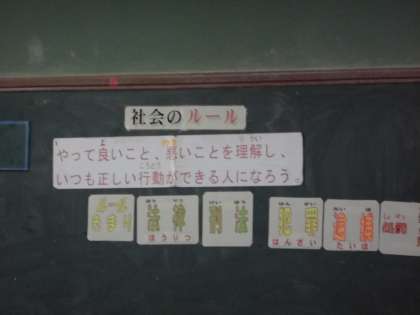 社会のルール
やって良いこと、悪いことを理解し、
いつも正しい行動ができる人になろう。
ルール
きまり
法律
ほうりつ
刑法
犯罪
はんざい
逮捕
たいほ